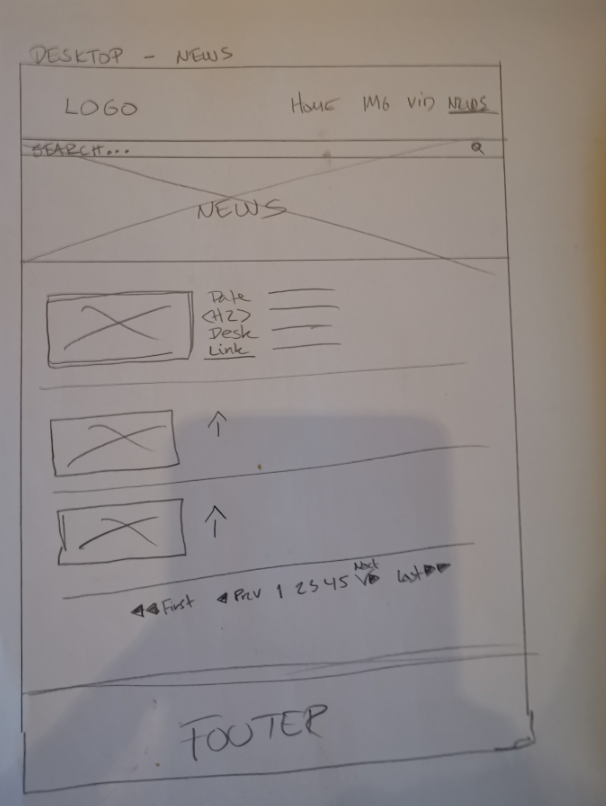 DESKTOP - NEWS
LOGO HOME IMG VID NEWS
SEARCH...
NEWS
Date
<H2>
Desk
Link
◀◀First ◀Prv 1 2 3 4 5 Next▶ Last▶▶
FOOTER